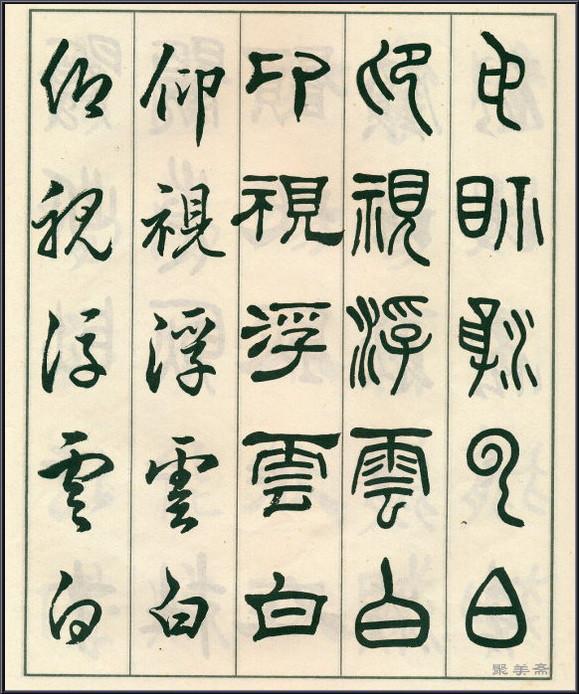 眎云白
卬視浮雲白
卬視浮雲白
仰視浮雲白
仰視浮雲白
聚美斋